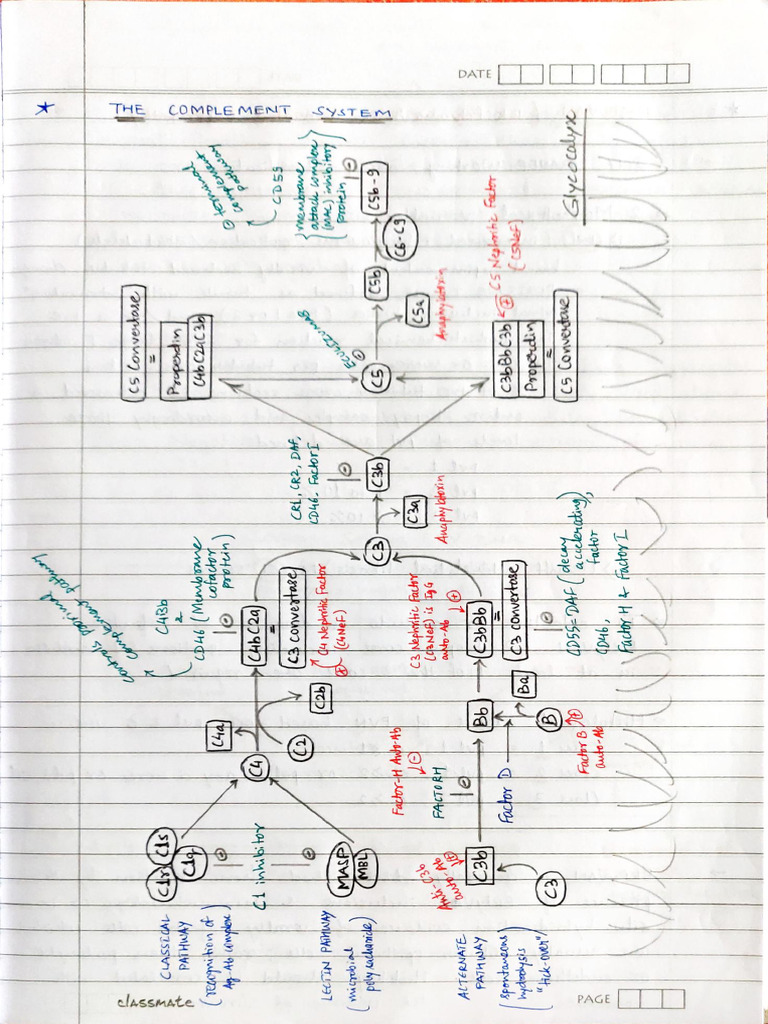 DATE
* THE COMPLEMENT SYSTEM
CLASSICAL
PATHWAY
(recognition of
Ag-Ab complex)
C1r
C1s
C1q
⊖
C1 inhibitor
⊖
LECTIN PATHWAY
(microbial
polysaccharide)
MASP
MBL
C4
C4a
C2
C2b
C4bC2a
=
C3 convertase
⊖
CD46 (Membrane
cofactor
protein)
C4Bb
controls proximal
complement pathway
⊕ C4 Nephritic Factor
(C4NeF)
ALTERNATE
PATHWAY
(spontaneous
hydrolysis
"tick-over")
C3
C3b
Anti-C3b
auto Ab
⊕
Factor-H Auto-Ab
⊖
FACTOR H
⊖
Factor D
Bb
B
Ba
Factor B ⊕
auto-Ab
C3bBb
=
C3 convertase
C3 Nephritic Factor
(C3NeF) is IgG
auto-Ab
⊕
⊖
CD55=DAF (decay
accelerating)
factor
CD46,
Factor H & Factor I
C3
C3a
Anaphylotoxin
C3b
⊖
CR1, CR2, DAF,
CD46, Factor I
C5 Convertase
=
Properdin
C4bC2aC3b
C3bBbC3b
Properdin
=
C5 Convertase
⊕ C5 Nephritic Factor
(C5NeF)
C5
⊖
Eculizumab
C5a
Anaphylotoxin
C5b
C6-C9
C5b-9
⊖
CD59
{membrane
attack complex
(MAC) inhibitory
protein}
⊖ terminal
complement
pathway
Glycocalyx
classmate
PAGE